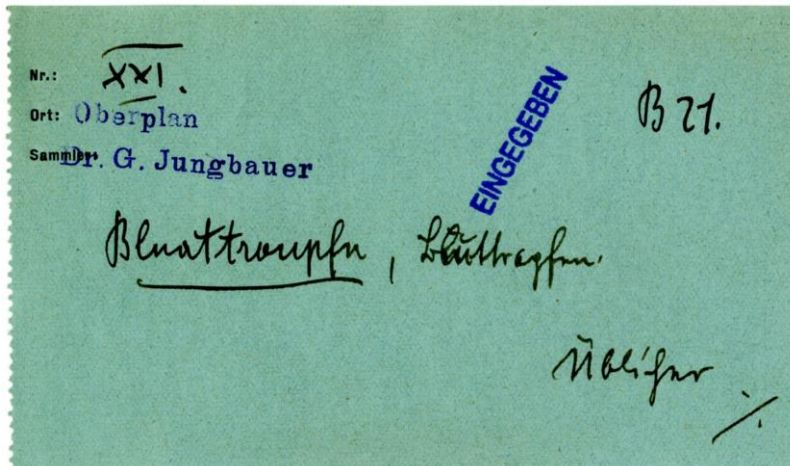 Nr.: XXI.
Ort: Oberplan
Sammler: Dr. G. Jungbauer
EINGEGEBEN
B 21.
Bluattroupfn, Bluttropfen.
Üblicher
./.